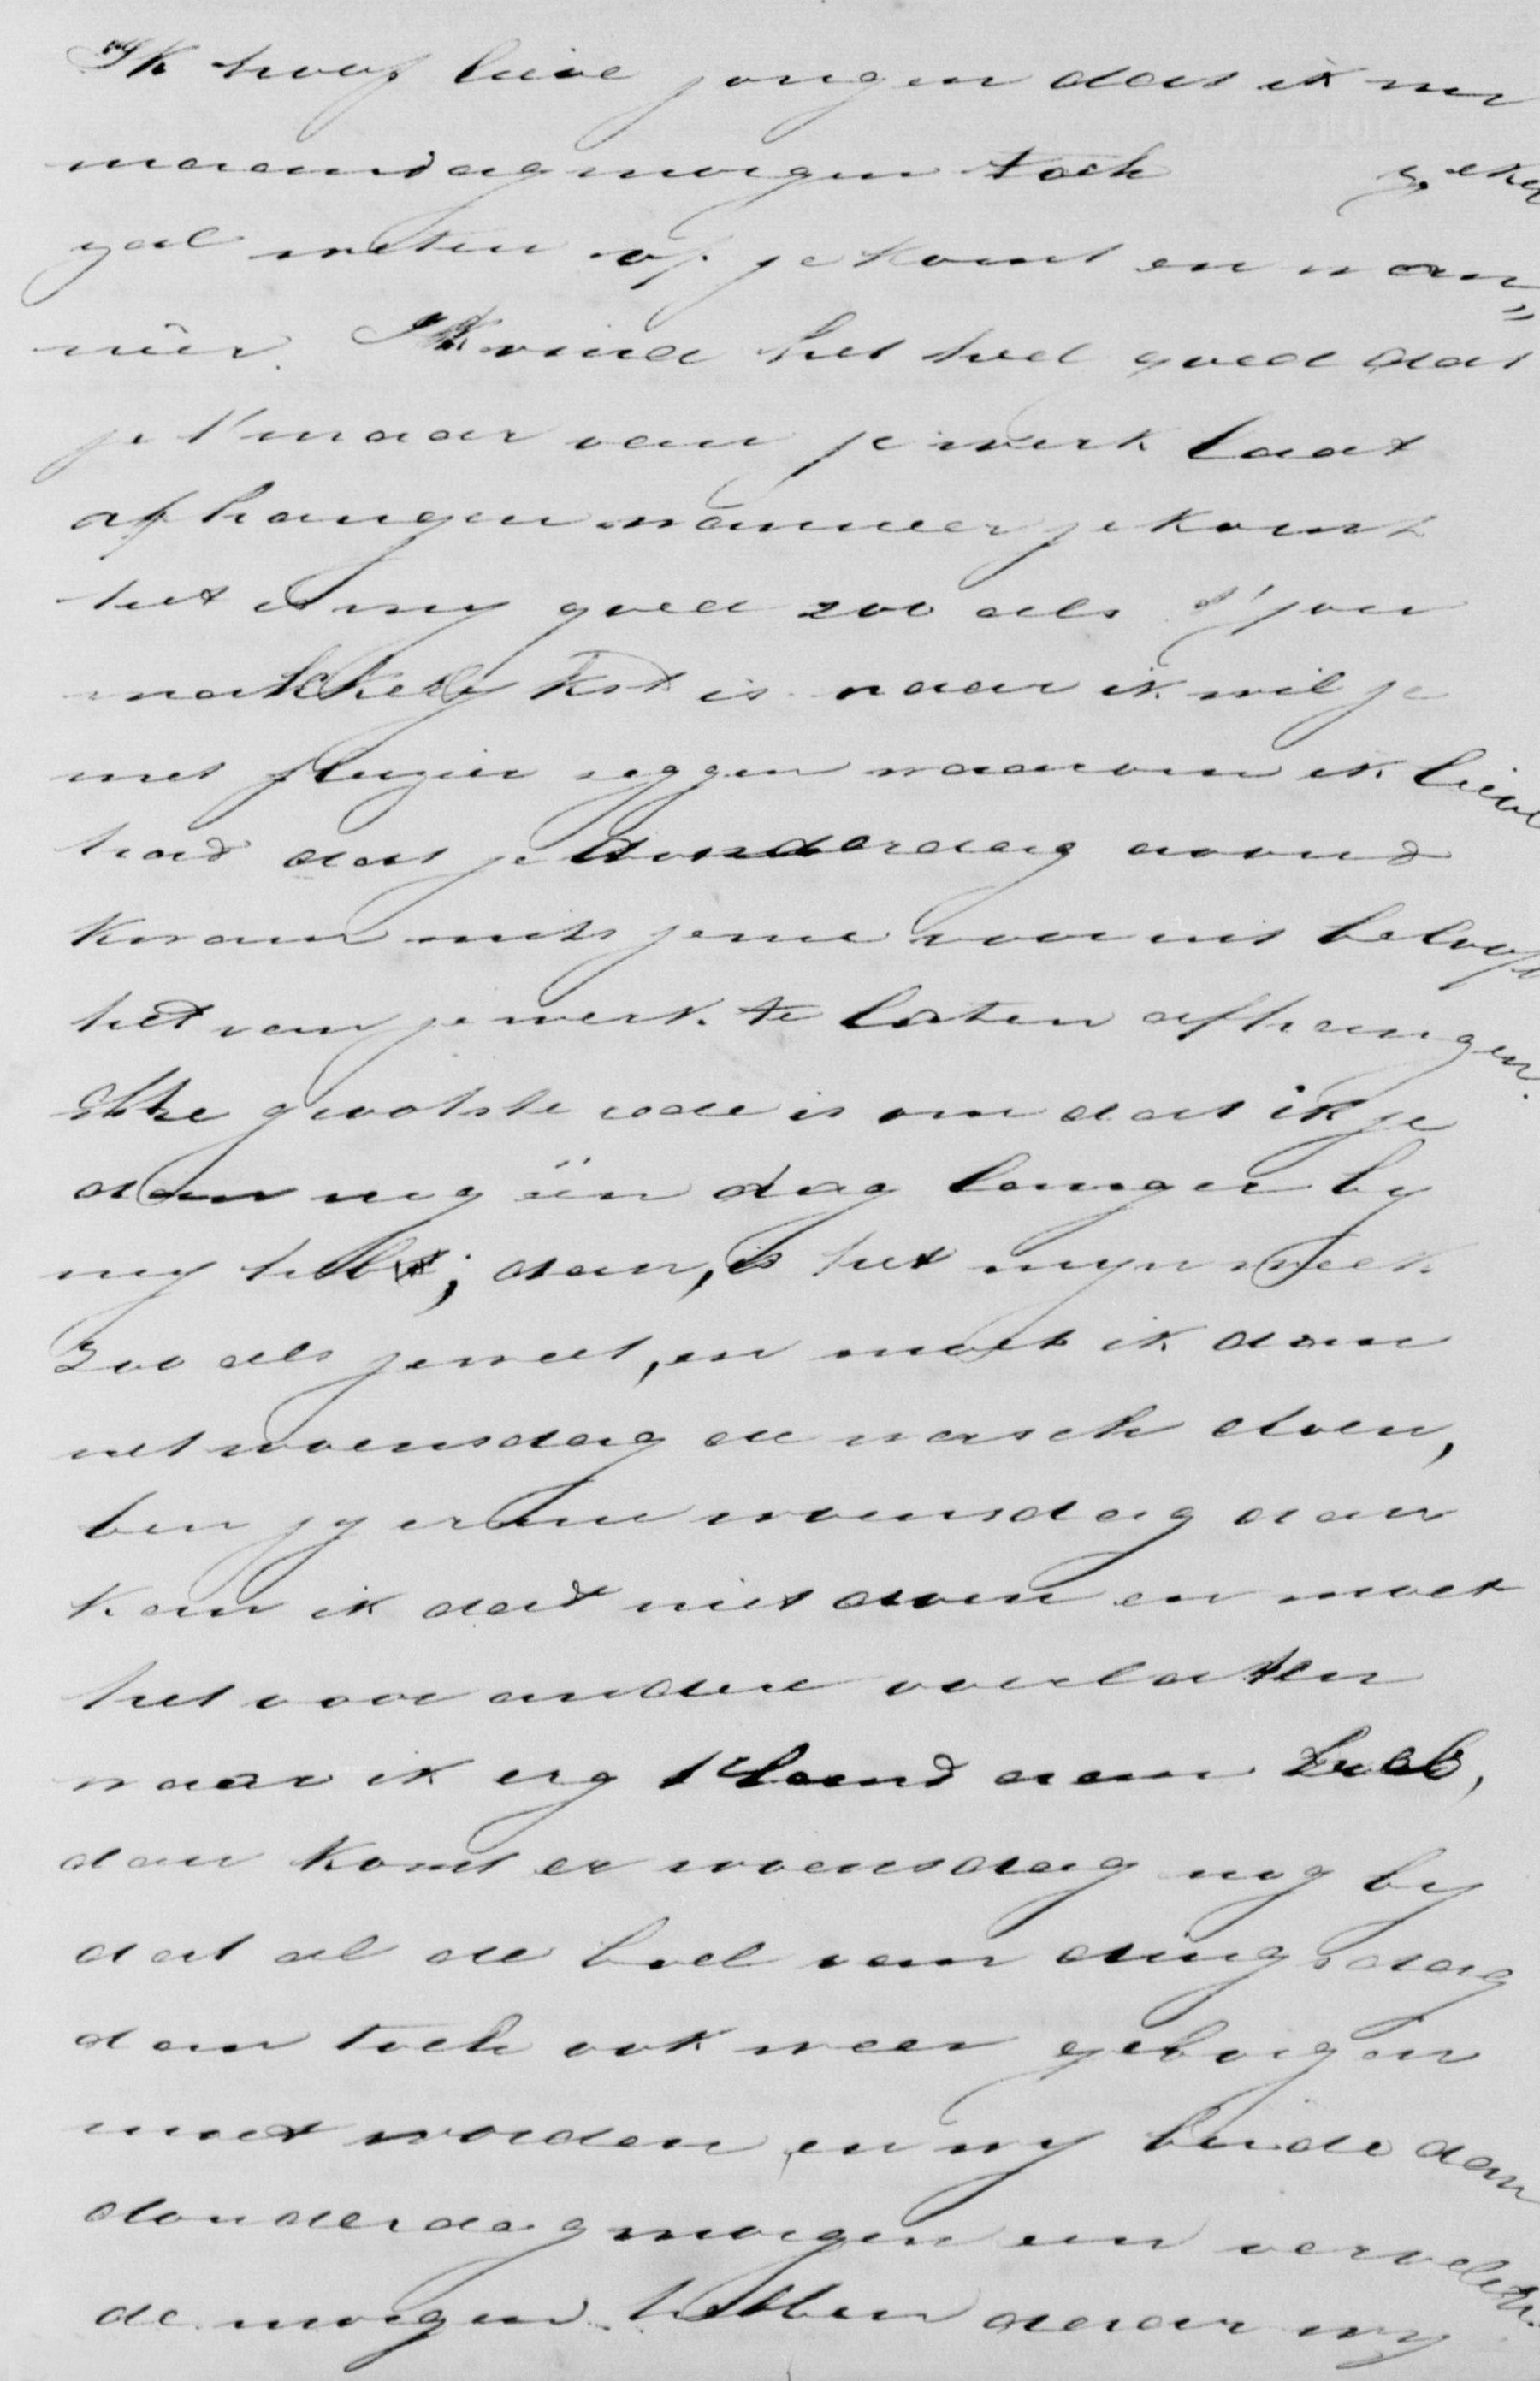 Ik hoop lieve jongen dat ik nu
maandagmorgen toch zeker
zal weten of je komt en wan„
neer. Ik vind het heel goed dat
je 't maar van je werk laat
afhangen wanneer je komt
het is my goed zoo als 't jou
makkelykst is maar ik wil je
met plezier zeggen waarom ik liever
had dat je donderdag avond
kwam mits je me vooruit belooft
het van je werk te laten afhangen.
grootste rede is om dat ik je
dan nog één dag langer by
my heb; dan, is het myn week
Zoo als je weet, en moet ik dan
net woensdag de wasch doen,
ben jy er nu woensdag dan
kan ik dat niet doen en moet
het voor andere overlaten
waar ik erg 't land aan heb,
dan komt er woensdag nog by
dat al de boel van dingsdag
dan toch ook weer geborgen
moet worden en wy beide dan
donderdagmorgen een vervelen
de morgen hebben daar wy